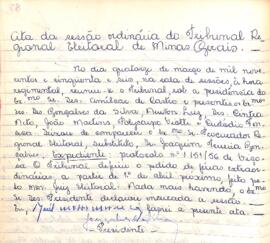 Ata da sessão ordinária do Tribunal Re-
gional Eleitoral de Minas Gerais.
No dia quatorze de março de mil nove-
centos e cinquenta e seis, na sala de sessões, à hora
regimental, reuniu-se o Tribunal, sob a presidência do
exmo. sr. des. Amilcar de Castro e presentes os exmos
srs. des. Gonçalves da Silva, Newton Luz, des.
Neto, João Martins
Deixou de comparecer o exmo sr. Procurador Re-
gional Eleitoral, substituto, dr. Joaquim Ferreira Gon-
çalves. Expediente: Protocolo nº 1.151/56 de
O Tribunal deferiu o pedido de férias extraor-
dinárias, a partir de 1º de abril próximo, feito pelo
mm. Juiz Eleitoral. Nada mais havendo, o exmo
sr. Des. Presidente declarou encerrada a sessão.
Eu, lavrei a presente ata.
Presidente